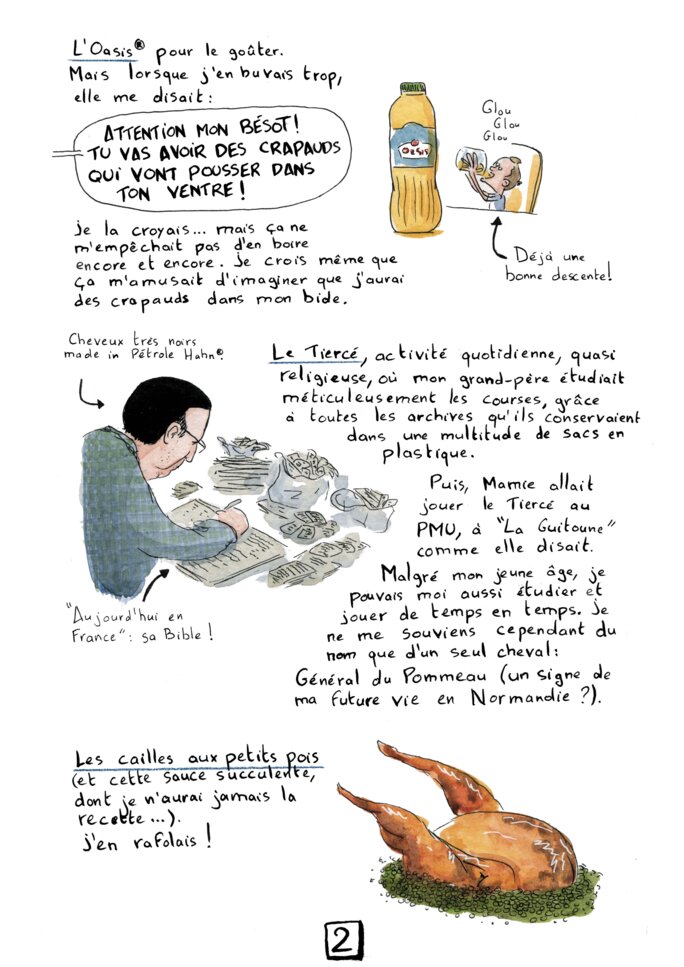 L'Oasis® pour le goûter.
Mais lorsque j'en buvais trop,
elle me disait :
ATTENTION MON BÉSOT !
TU VAS AVOIR DES CRAPAUDS
QUI VONT POUSSER DANS
TON VENTRE !
OASIS
Glou
Glou
Glou
Déjà une
bonne descente !
je la croyais... mais ça ne
m'empêchait pas d'en boire
encore et encore. Je crois même que
ça m'amusait d'imaginer que j'aurai
des crapauds dans mon bide.
Cheveux très noirs
made in Pétrole Hahn®.
Le Tiercé, activité quotidienne, quasi
religieuse, où mon grand-père étudiait
méticuleusement les courses, grâce
à toutes les archives qu'ils conservaient
dans une multitude de sacs en
plastique.
Puis, Mamie allait
jouer le Tiercé au
PMU, à "La Guitoune"
comme elle disait.
"Aujourd'hui en
France" : sa Bible !
Malgré mon jeune âge, je
pouvais moi aussi étudier et
jouer de temps en temps. Je
ne me souviens cependant du
nom que d'un seul cheval :
Général du Pommeau (un signe de
ma future vie en Normandie ?).
Les cailles aux petits pois
(et cette sauce succulente,
dont je n'aurai jamais la
recette...).
j'en rafolais !
2